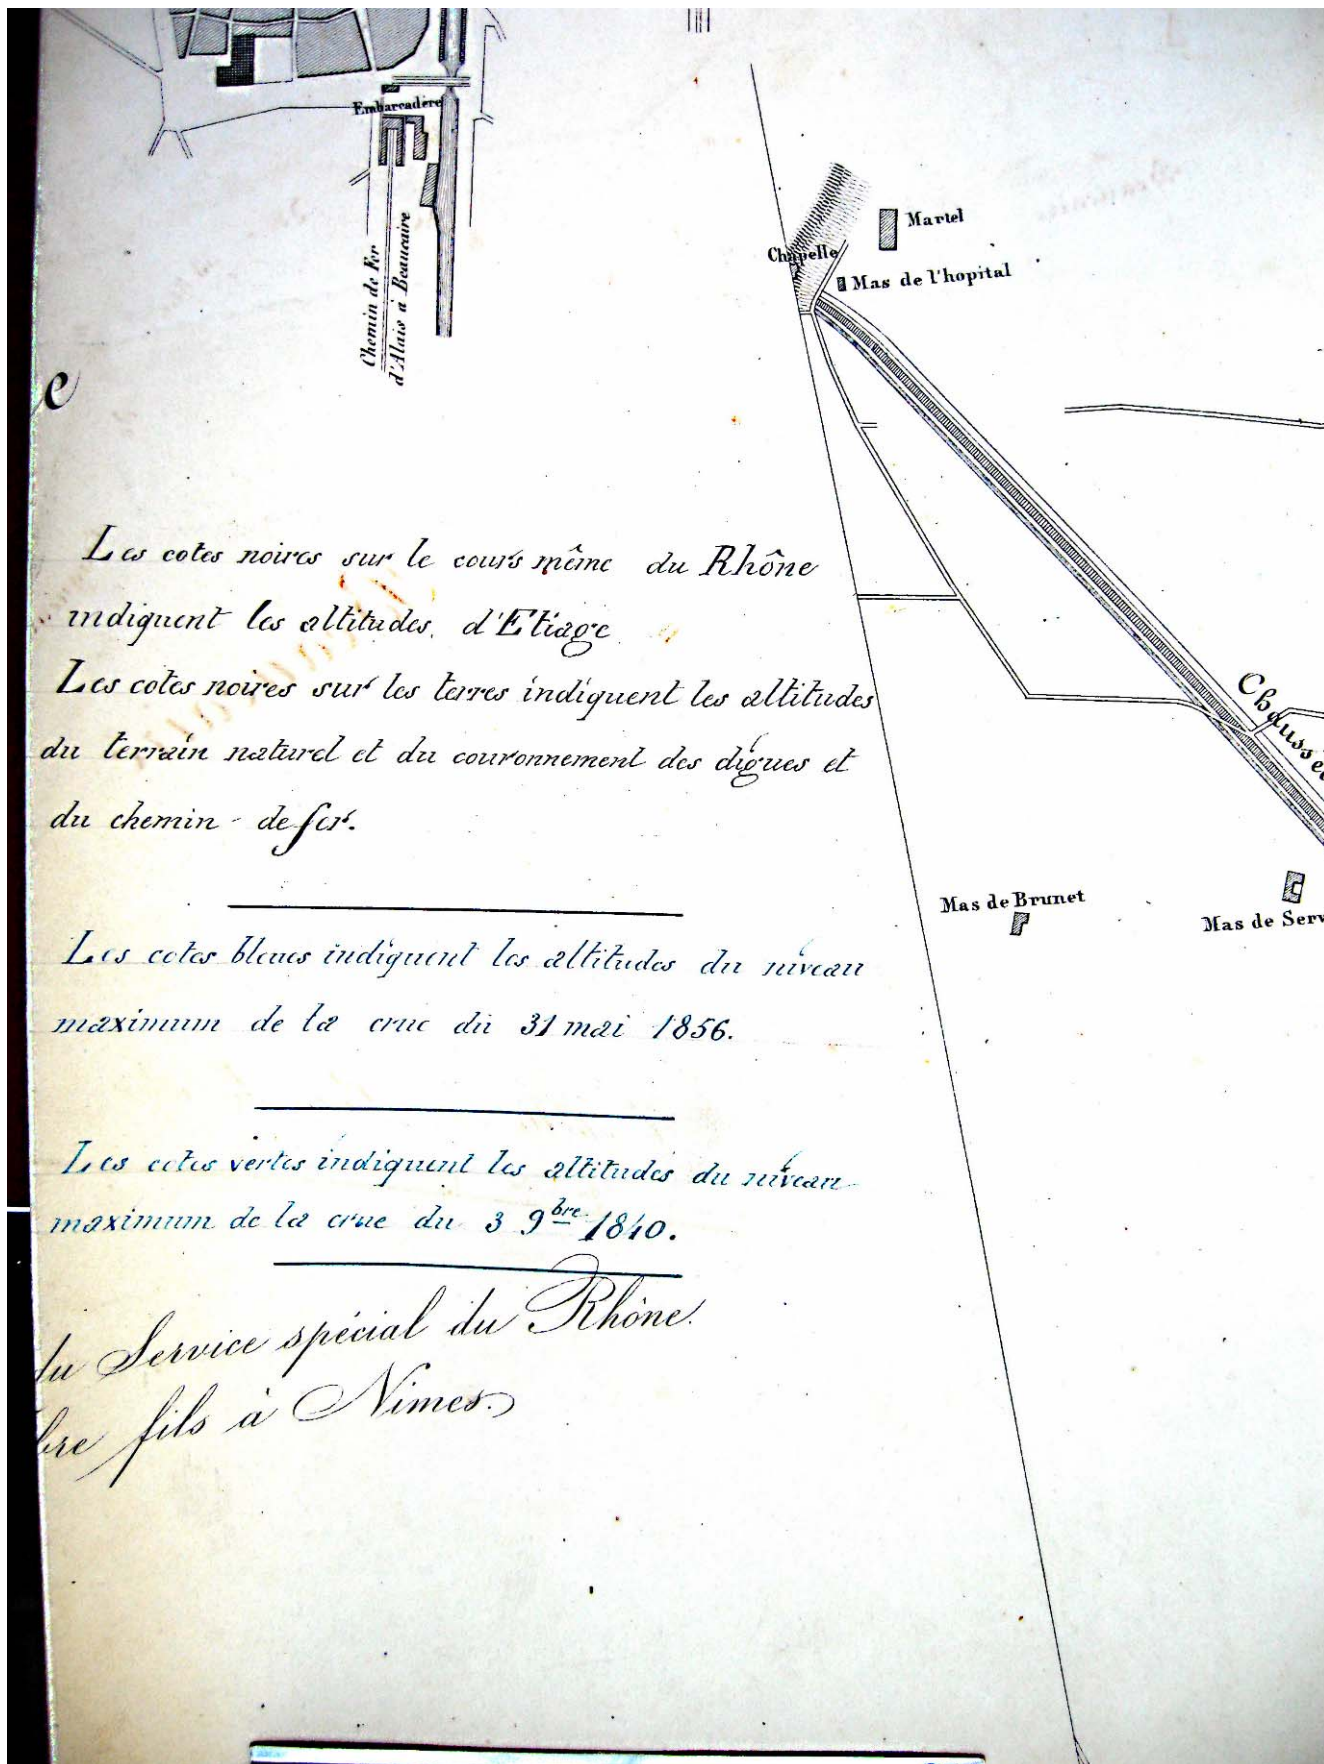 Embarcadère
Chemin de Fer
d'Alais à Beaucaire
Martel
Chapelle
Mas de l'hopital
e
Les cotes noires sur le cours même du Rhône
indiquent les altitudes d'Etiage
Les cotes noires sur les terres indiquent les altitudes
du terrain naturel et du couronnement des digues et
du chemin - de fer.
Chaussée
Mas de Brunet
Mas de Serv
Les cotes bleues indiquent les altitudes du niveau
maximum de la crue du 31 mai 1856.
Les cotes vertes indiquent les altitudes du niveau
maximum de la crue du 3 9bre 1840.
du Service spécial du Rhône.
bre fils à Nimes